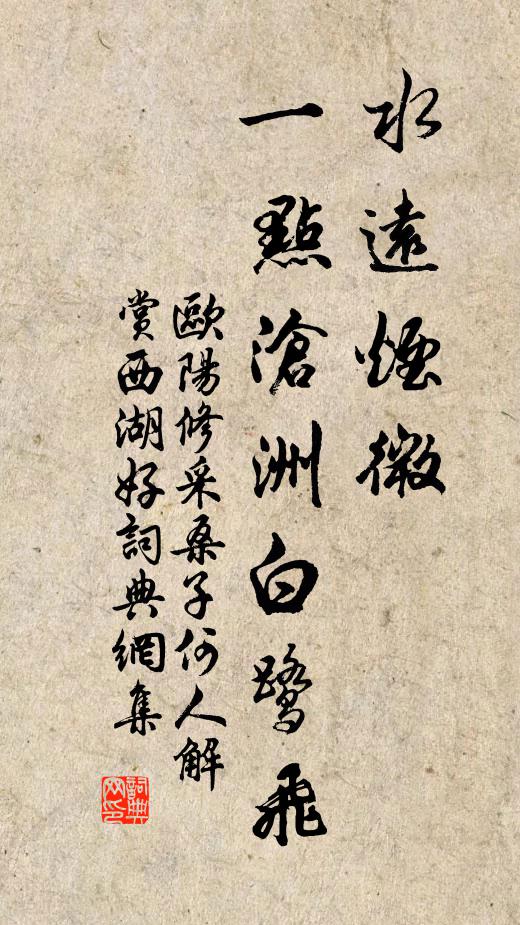 水遠煙微
一點滄洲白鷺飛
歐陽修采桑子何人解
賞西湖好詞典網集
詞典网印